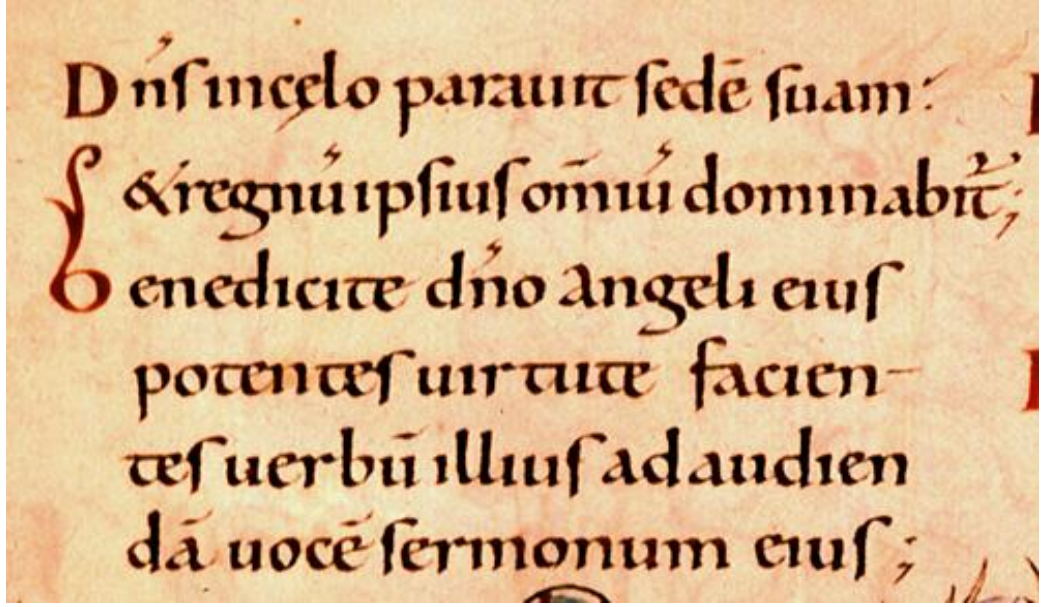 Dn̄s in cęlo parauit sedē suam:
& regnū ipsius om̄iū dominabit̄;
Benedicite dn̄o angeli eius
potentes uirtute facien-
tes uerbū illius ad audien
dā uocē sermonum eius;